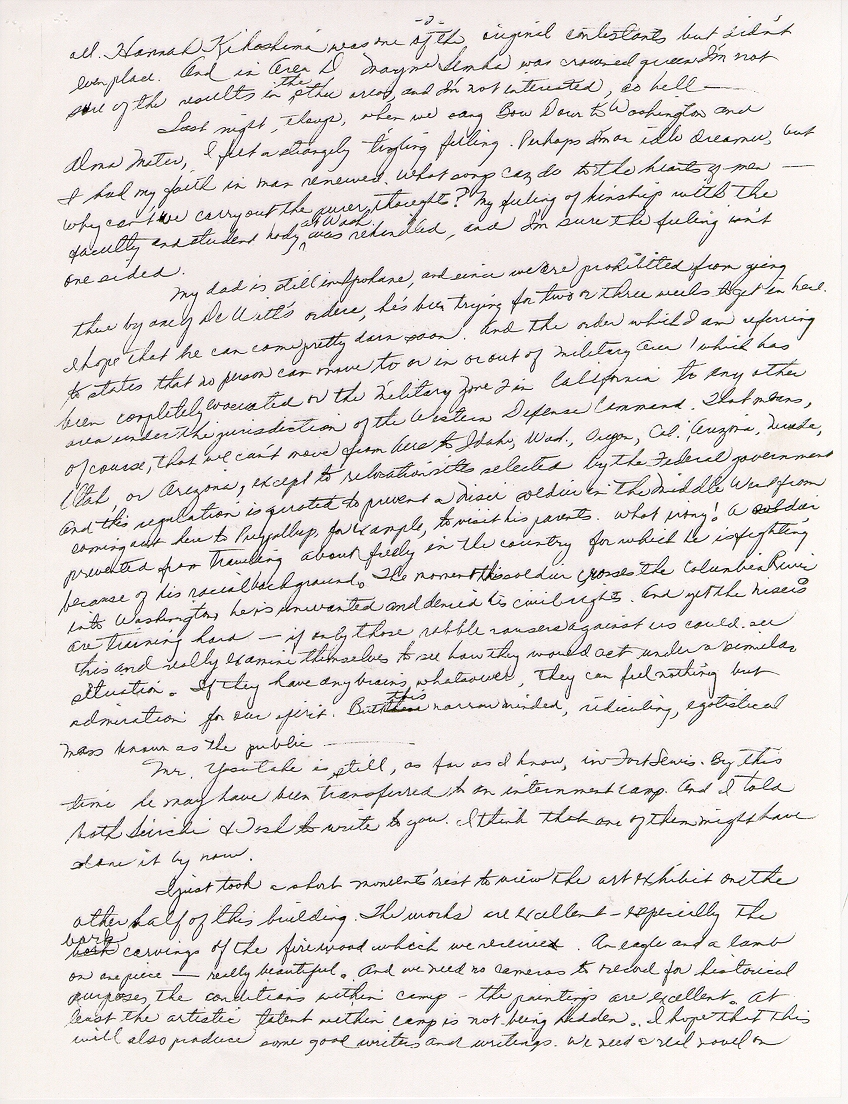 -2-
all. Hannah Kihoshima was one of the original contestants but didn't
even place. And in Area D Mayme Semba was crowned queen I'm not
sure of the results in the other areas, and I'm not interested, so hell —
Last night, though, when we sang Bow Down to Washington and
Alma Mater, I felt a strangely tingling feeling. Perhaps I'm an idle dreamer, but
I had my faith in man renewed. What songs can do to the hearts of men —
why can't we carry out the purer thoughts? My feeling of kinship with the
faculty and student body at Wash. was rekindled, and I'm sure the feeling isn't
one sided.
My dad is still in Spokane, and since we are prohibited from going
there by one of De Witt's orders, he's been trying for two or three weeks to get in here.
I hope that he can come pretty darn soon. And the order which I am referring
to states that no person can move to or in or out of Military Area 1 which has
been completely evacuated or the Military Zone 2 in California to any other
area under the jurisdiction of the Western Defense Command. That means,
of course, that we can't move from here to Idaho, Wash., Oregon, Cal., Arizona, Nevada,
Utah, or Arizona, except to relocation sites selected by the Federal government
and this regulation is quoted to prevent a Nisei soldier in the Middle West from
coming out here to Puyallup, for example, to visit his parents. What irony! A soldier
prevented from traveling about freely in the country for which he is fighting
because of his racial background. The moment this soldier crosses the Columbia River
into Washington, he is unwanted and denied his civil rights. And yet the Niseis
are training hard — if only those rabble rousers against us could see
this and really examine themselves to see how they would act under a similar
situation. If they have any brains, whatsoever, they can feel nothing but
admiration for our spirit. But this narrow minded, ridiculing, egotistical
mass known as the public —
Mr. Yasutake is still, as far as I know, in Fort Lewis. By this
time he may have been transferred to an internment camp. And I told
both Seiichi & Tosh to write to you. I think that one of them might have
done it by now.
I just took a short moments' rest to view the art exhibit on the
other half of this building. The works are excellent - especially the
bark carvings of the firewood which we received. An eagle and a lamb
on one piece — really beautiful. And we need no cameras to record for historical
purposes, the conditions within camp - the paintings are excellent. At
least the artistic talent within camp is not being hidden. I hope that this
will also produce some good writers and writings. We need a real novel on